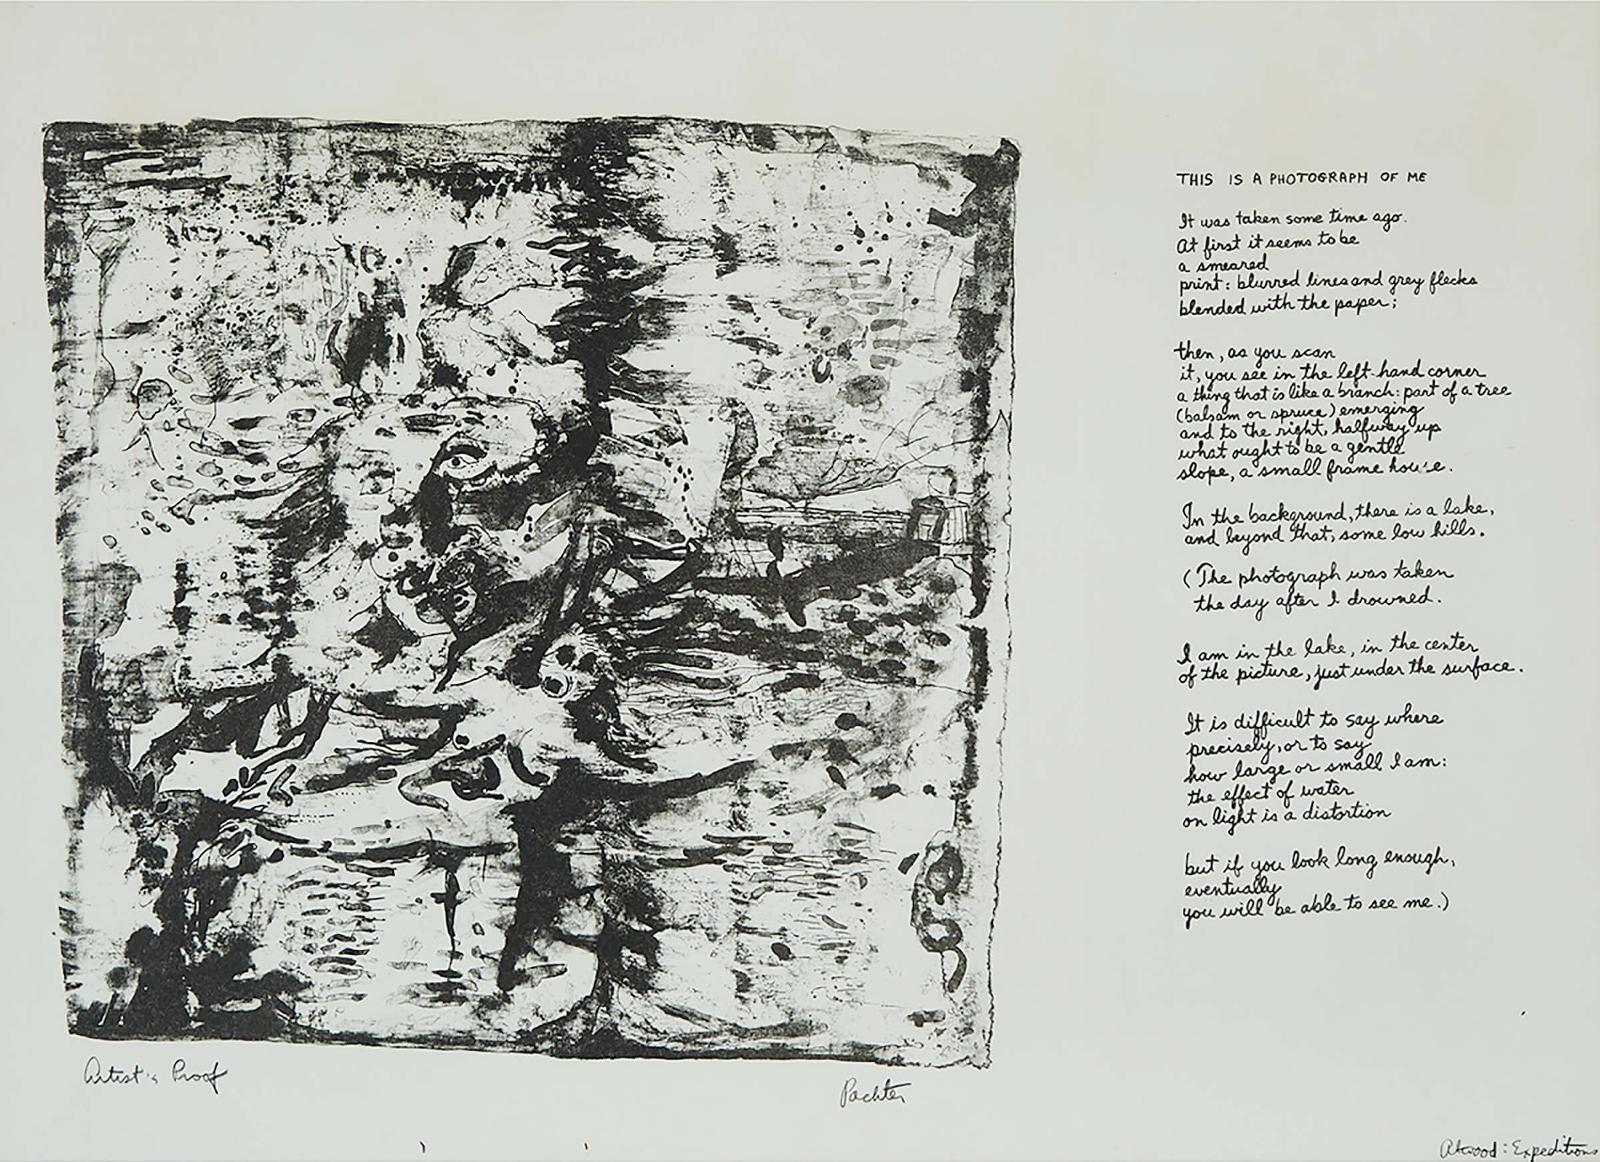 THIS IS A PHOTOGRAPH OF ME
It was taken some time ago.
At first it seems to be
a smeared
print: blurred lines and grey flecks
blended with the paper;
then, as you scan
it, you see in the left-hand corner
a thing that is like a branch: part of a tree
(balsam or spruce) emerging
and to the right, halfway up
what ought to be a gentle
slope, a small frame house.
In the background, there is a lake,
and beyond that, some low hills.
(The photograph was taken
the day after I drowned.
I am in the lake, in the center
of the picture, just under the surface.
It is difficult to say where
precisely, or to say
how large or small I am:
the effect of water
on light is a distortion
but if you look long enough,
eventually
you will be able to see me.)
Artist's Proof
Pachter
Atwood: Expeditions